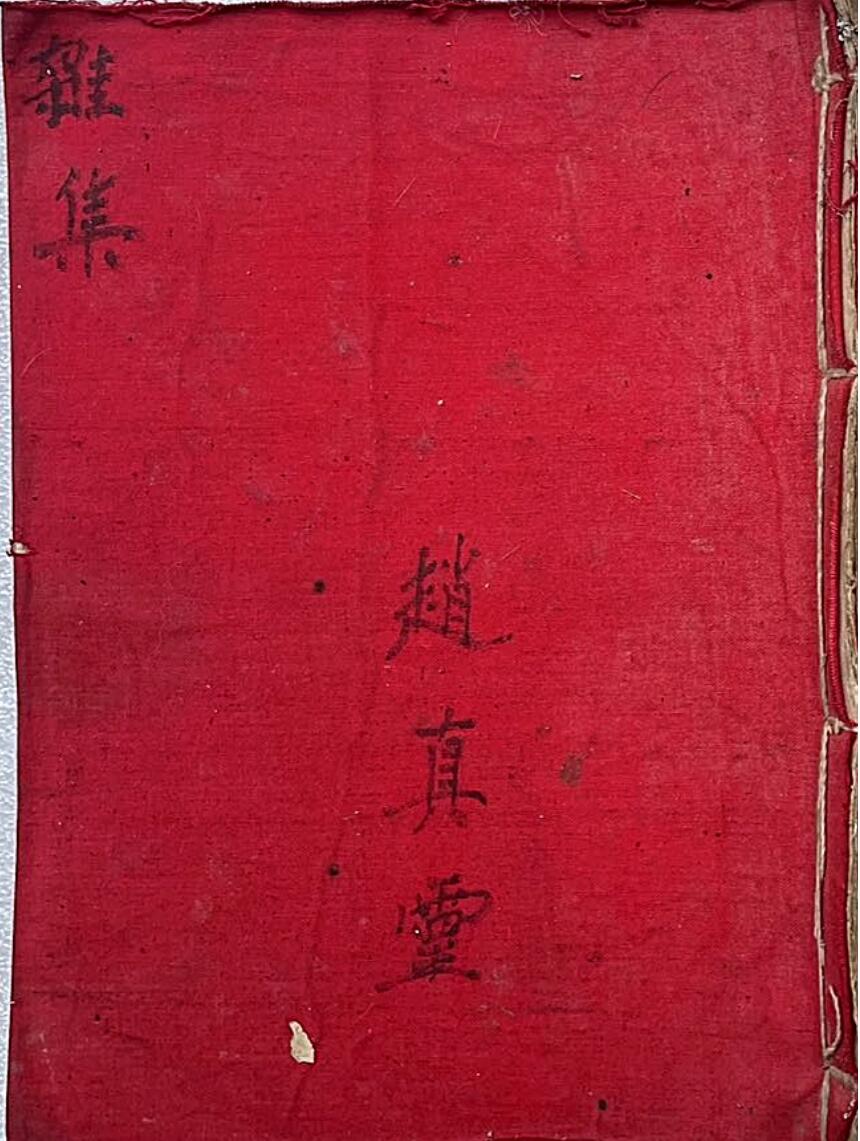 雜集
趙真靈